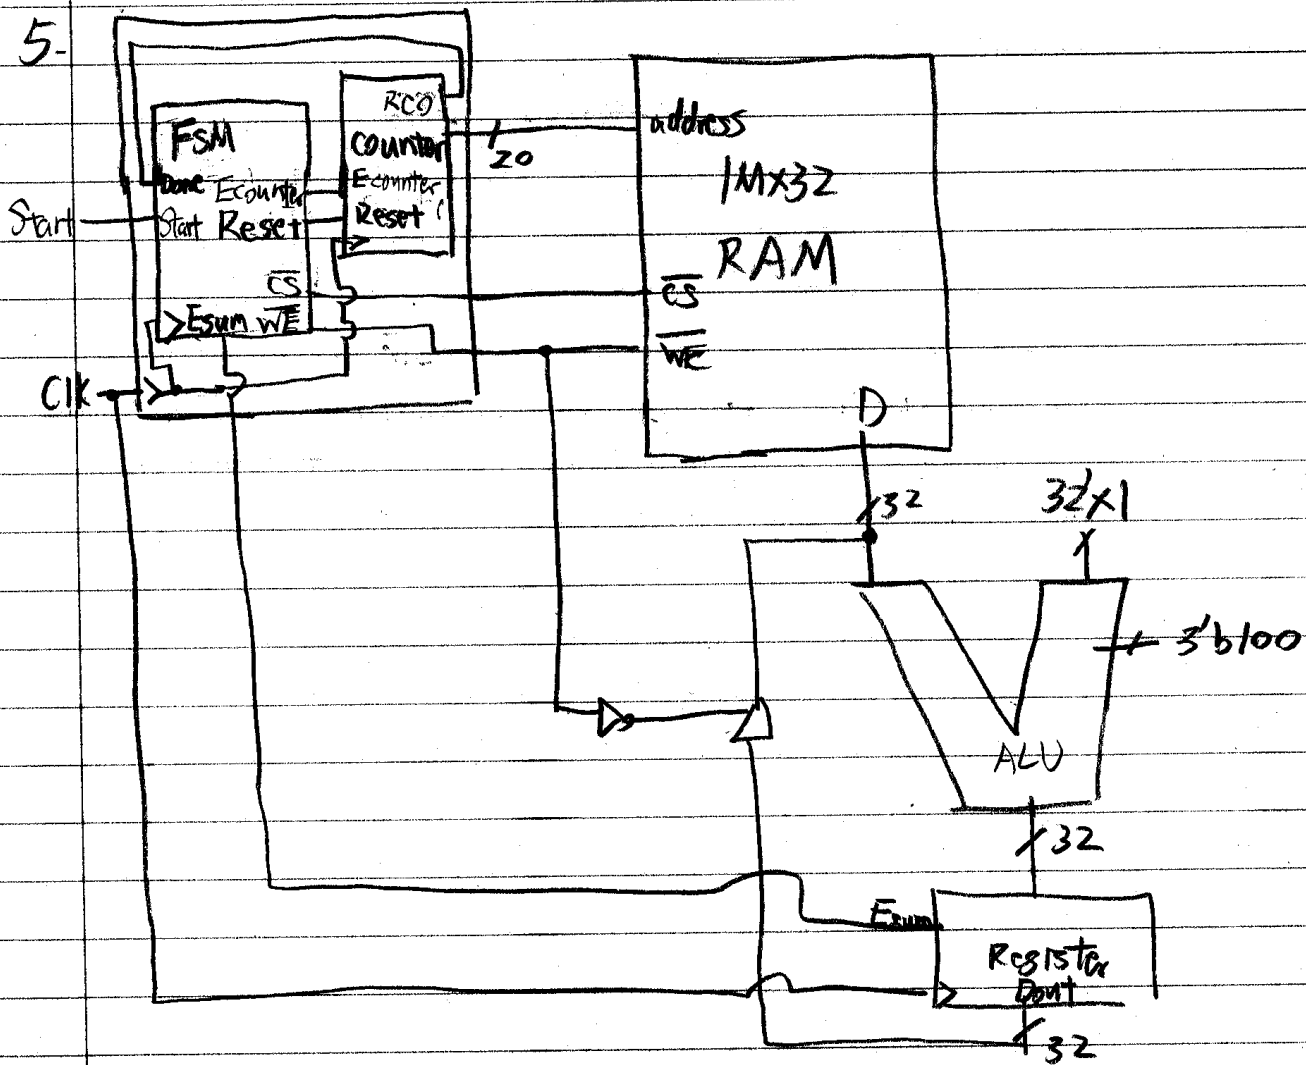 5-
FSM
Done
Ecounter
Start
Start
Reset
C̅S̅
Esum
W̅E̅
Clk
RCO
counter
Ecounter
Reset
20
address
1Mx32
RAM
C̅S̅
W̅E̅
D
32
32'x1
3'b100
ALU
32
Esum
Register
Dout
32